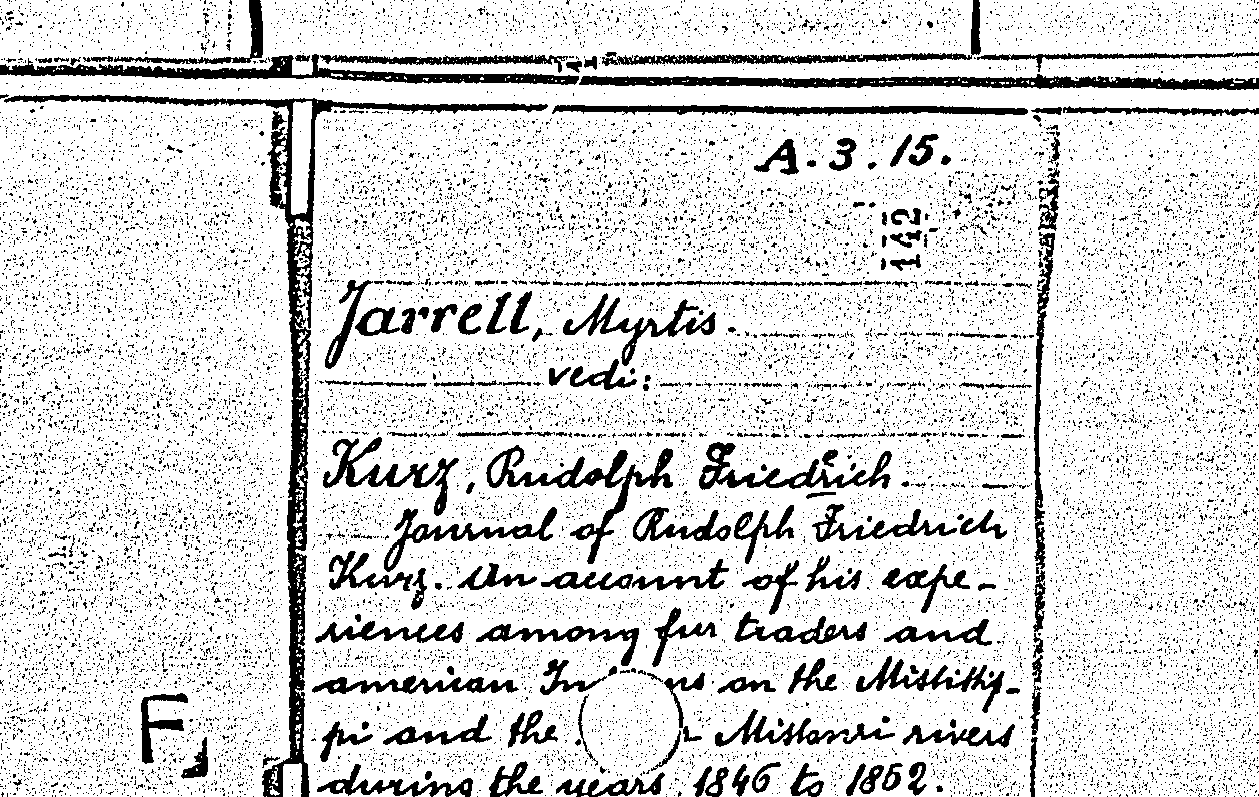 A.3.15.
142
Jarrell, Myrtis.
vedi:
Kurz, Rudolph Friedrich.
Journal of Rudolph Friedrich
Kurz. An account of his expe-
riences among fur traders and
american In ns on the Mississip-
pi and the Missouri rivers
during the years 1846 to 1852.
F